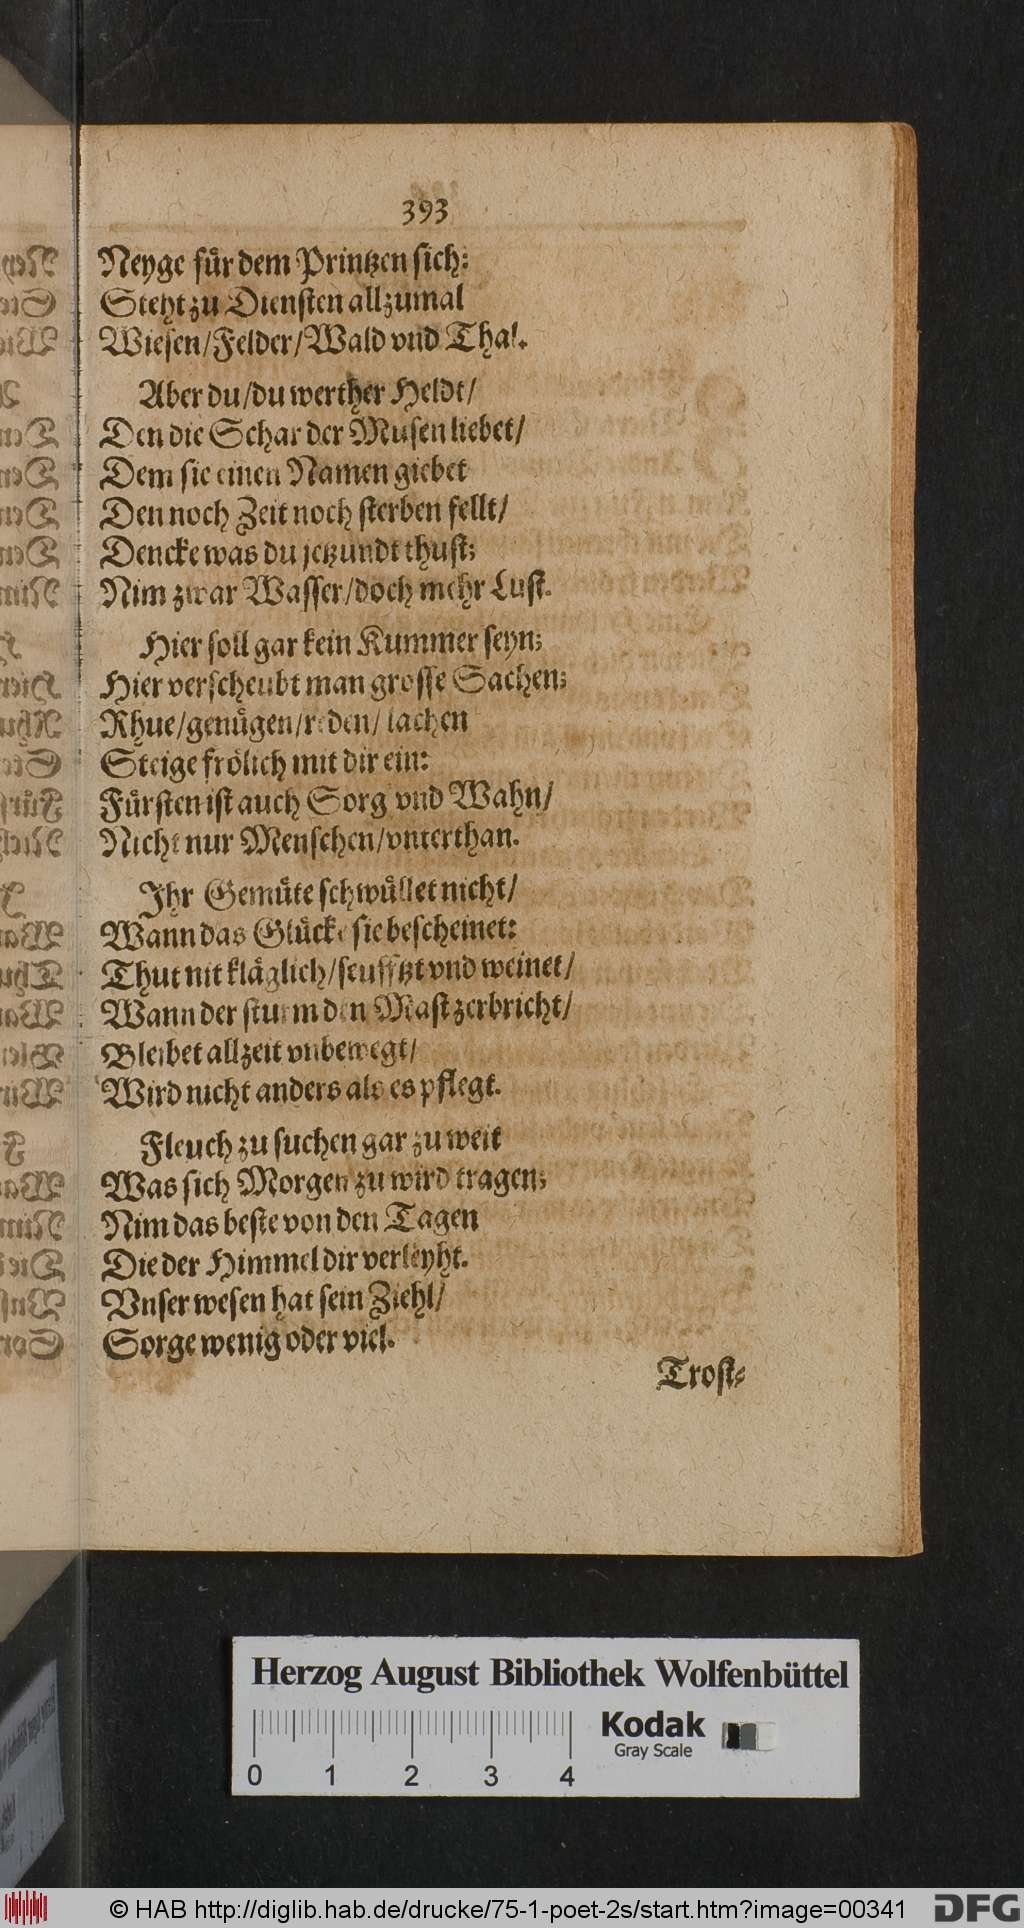 393
Neyge für dem Printzen sich:
Steht zu Diensten allzumal
Wiesen/Felder/Wald vnd Thal.
Aber du/du werther Heldt/
Den die Schar der Musen liebet/
Dem sie einen Namen giebet
Den noch Zeit noch sterben fellt/
Dencke was du jetzundt thust;
Nim zwar Wasser/doch mehr Lust.
Hier soll gar kein Kummer seyn;
Hier verscheubt man grosse Sachen;
Rhue/genügen/reden/lachen
Steige frölich mit dir ein:
Fürsten ist auch Sorg vnd Wahn/
Nicht nur Menschen/vnterthan.
Ihr Gemüte schwüllet nicht/
Wann das Glücke sie bescheinet:
Thut nit kläglich/seufftzt vnd weinet/
Wann der sturm den Mast zerbricht/
Bleibet allzeit vnbewegt/
Wird nicht anders als es pflegt.
Fleuch zu suchen gar zu weit
Was sich Morgen zu wird tragen;
Nim das beste von den Tagen
Die der Himmel dir verleyht.
Vnser wesen hat sein Ziehl/
Sorge wenig oder viel.
Trost⸗
Herzog August Bibliothek Wolfenbüttel
Kodak
Gray Scale
0 1 2 3 4
© HAB http://diglib.hab.de/drucke/75-1-poet-2s/start.htm?image=00341
DFG